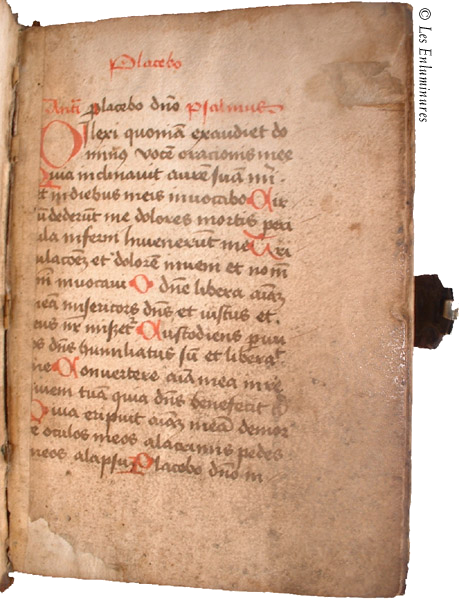 Placebo
Anti Placebo dño Psalmus
Dilexi quoniã exaudiet do
minus vocẽ oracionis mee
Quia inclinauit aurẽ suã m̃ .
et in diebus meis inuocabo Cir
dederũt me dolores mortis peri
cula inferni Inuenerũt me Tri
bulacõeʒ et dolorẽ inueni et nom
inuocaui O dñe libera aĩaʒ
meã misericors dñs et iustus et .
deus nr̃ Custodiens paru
los dñs humiliatus sũ et libera
me Conuertere aĩa mea in re
quiem tuã quia dñs benefecit
Quia eripuit aĩaʒ meã de mor
te oculos meos a lacrimis pedes
meos a lapsu Placebo dño in
© Les Enluminures